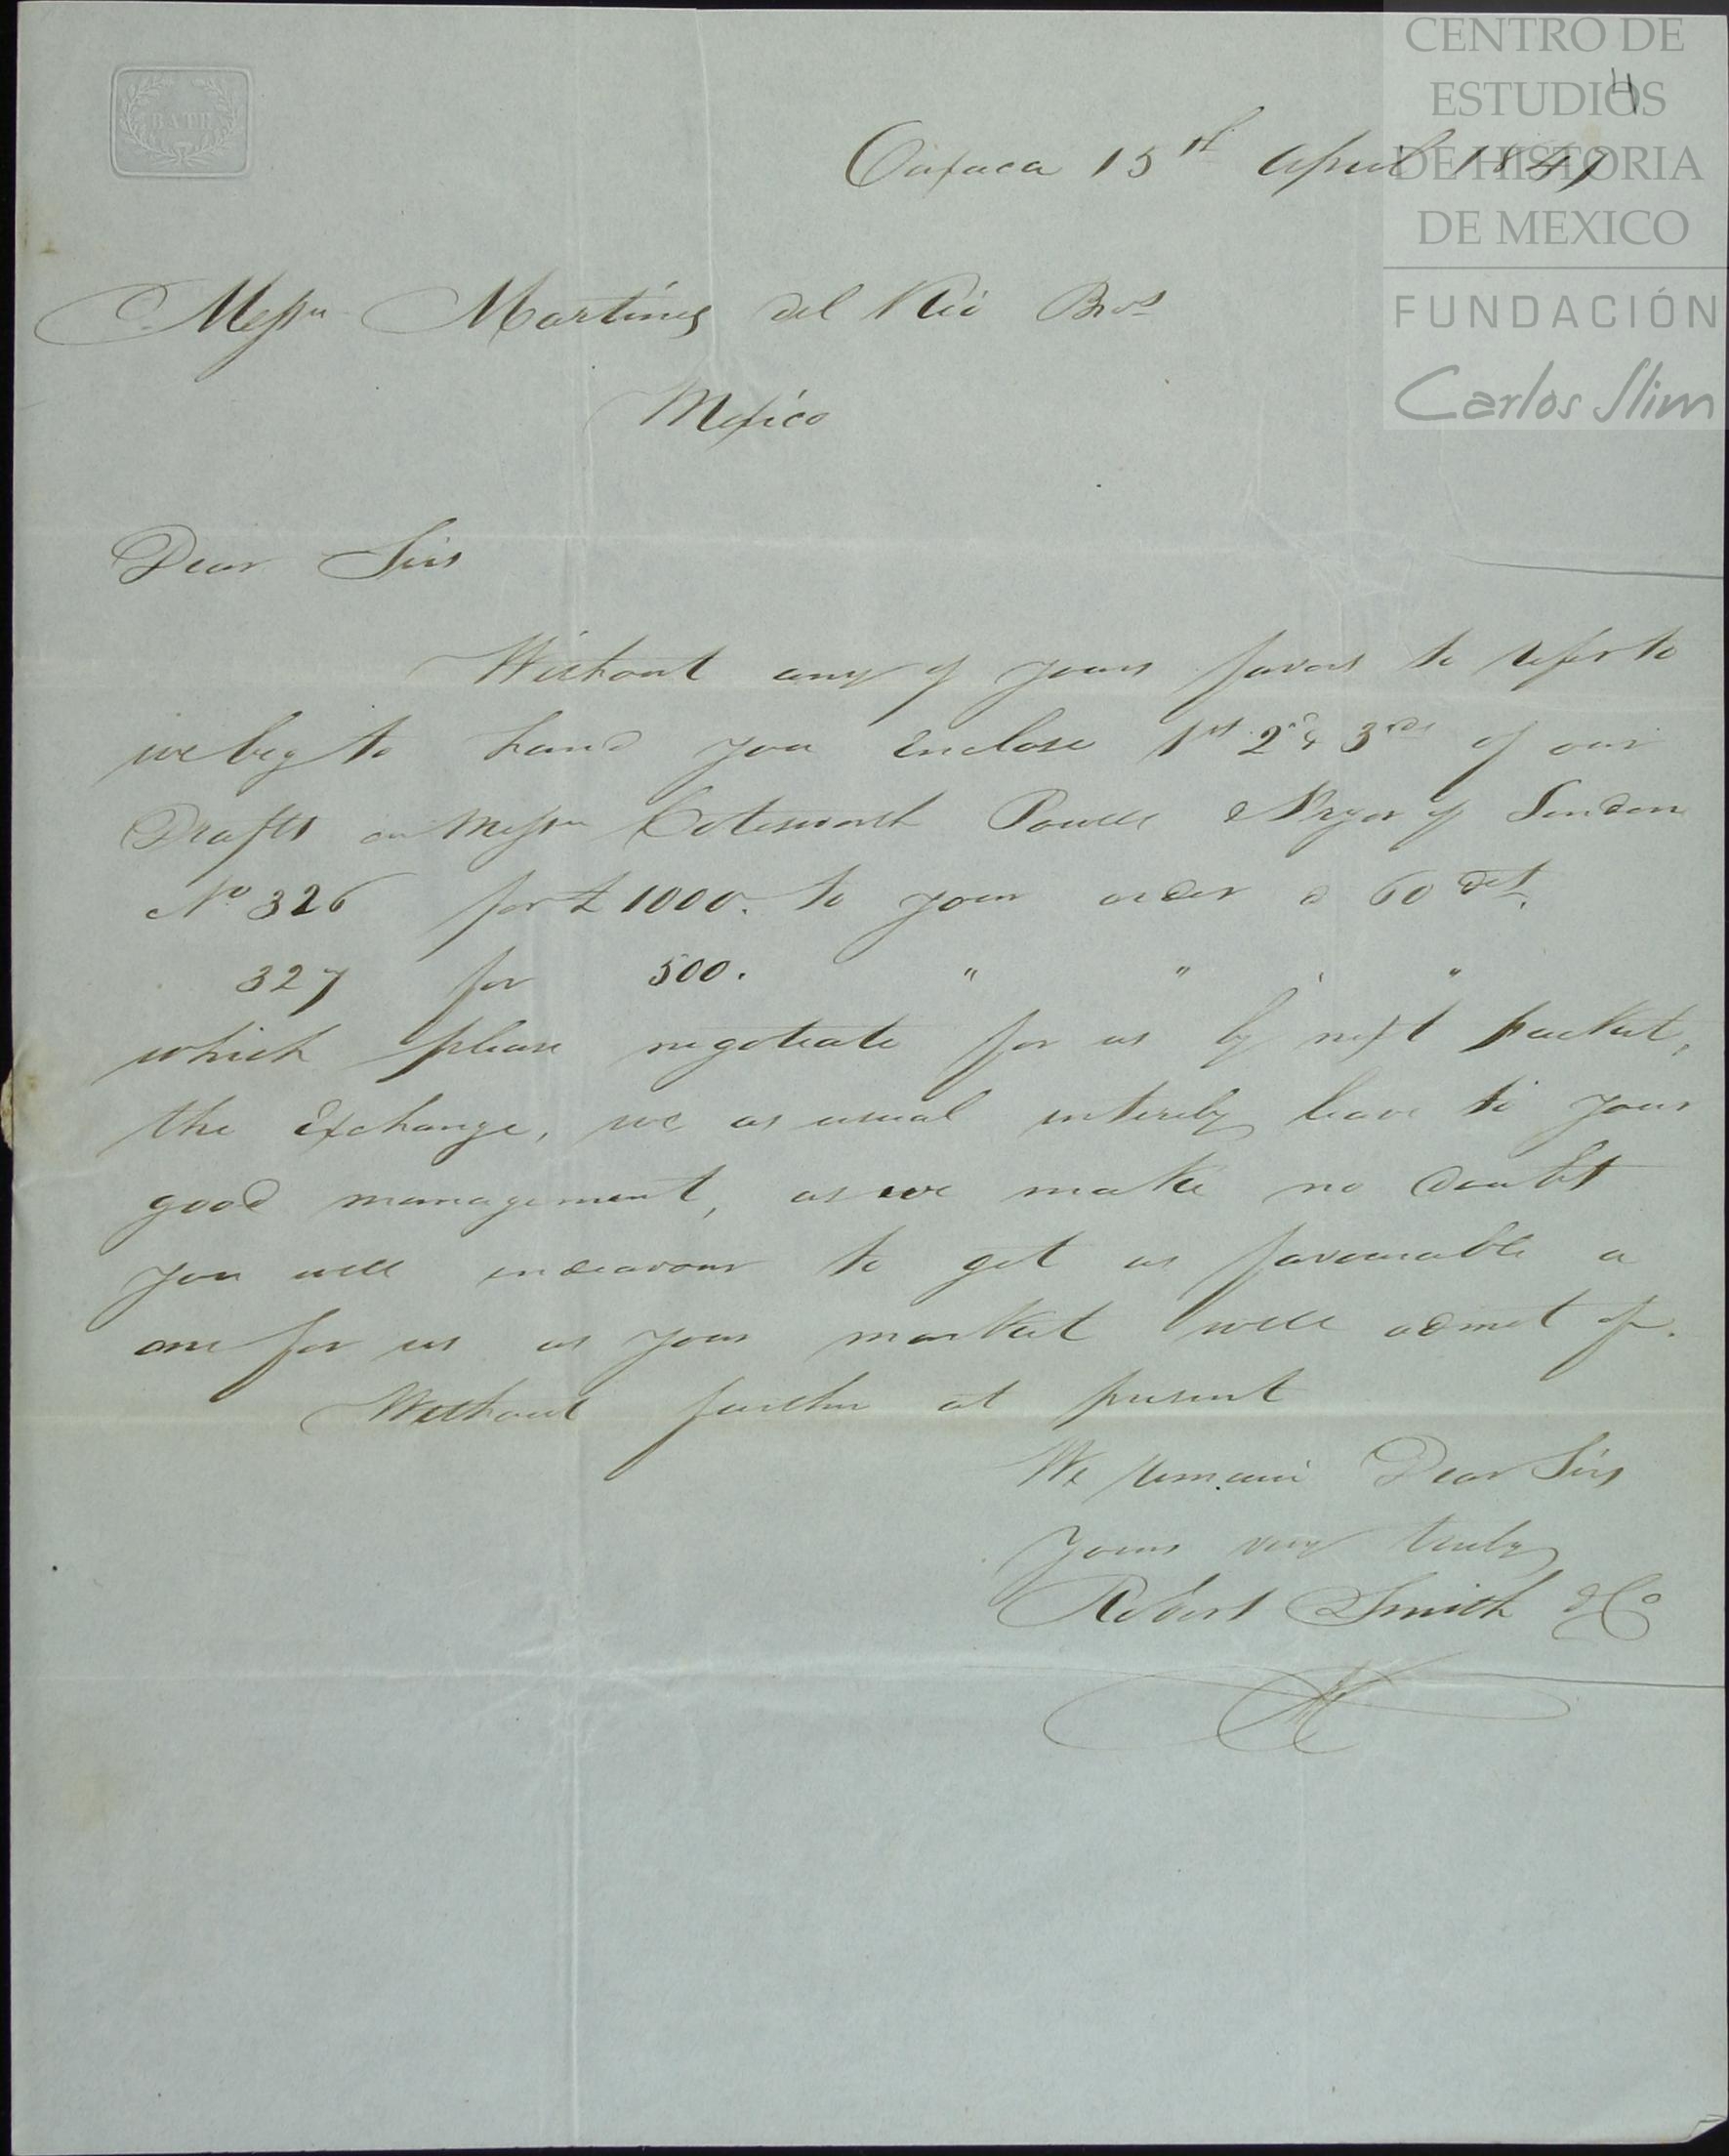 BATH
CENTRO DE
ESTUDIOS
DE HISTORIA
DE MEXICO
FUNDACIÓN
Carlos Slim
4
Oaxaca 15th April 1847
Messrs Martinez del Rio Bros
Mexico
Dear Sirs
Without any of yours favors to refer to
we beg to hand you enclose 1st 2d & 3rd of our
Drafts on Messrs Cotesworth Powell & Pryor of London
No 326 for £ 1000. to your order a 60 d/st.
327 for 500. " " ' "
which please negotiate for us by next packet,
the Exchange, we as usual intirely leave to your
good management, as we make no doubt
you will endeavour to get as favourable a
one for us as your market will admit of.
Without further at present
We remain Dear Sirs
Yours very truly
Robert Smith & Co